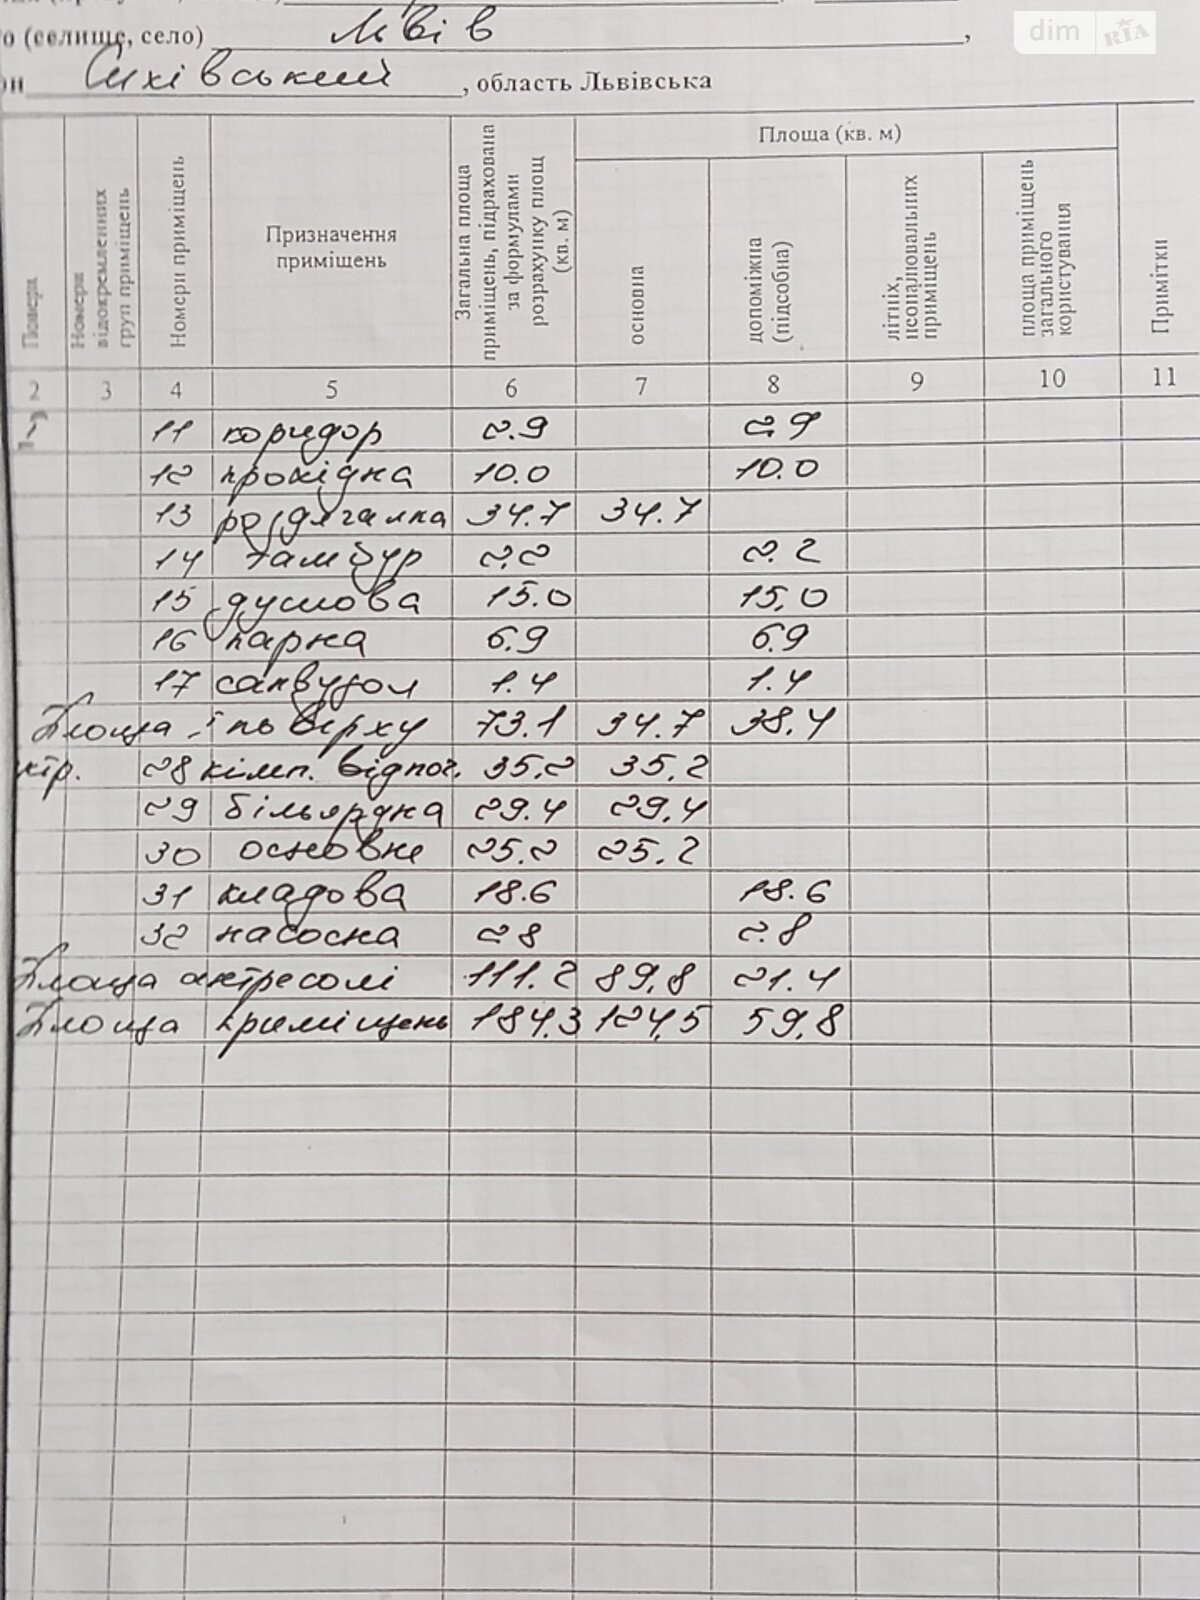 о (селище, село) Львів ,
dim RIA
он Сихівський , область Львівська
Поверх
Номери відокремлених груп приміщень
Номери приміщень
Призначення приміщень
Загальна площа приміщень, підрахована за формулами розрахунку площ (кв. м)
Площа (кв. м)
основна
допоміжна (підсобна)
літніх, неопалювальних приміщень
площа приміщень загального користування
Примітки
2 3 4 5 6 7 8 9 10 11
1 11 коридор 2.9 2.9
12 прохідна 10.0 10.0
13 роздягалка 34.7 34.7
14 тамбур 2.2 2.2
15 душова 15.0 15,0
16 парна 6.9 6.9
17 санвузол 1.4 1.4
Площа І поверху 73.1 34.7 38.4
нтр. 28 кімн. відпоч. 35.2 35.2
29 більярдна 29.4 29.4
30 основне 25.2 25.2
31 кладова 18.6 18.6
32 насосна 2.8 2.8
Площа антресолі 111.2 89,8 21.4
Площа приміщень 184.3 124,5 59,8